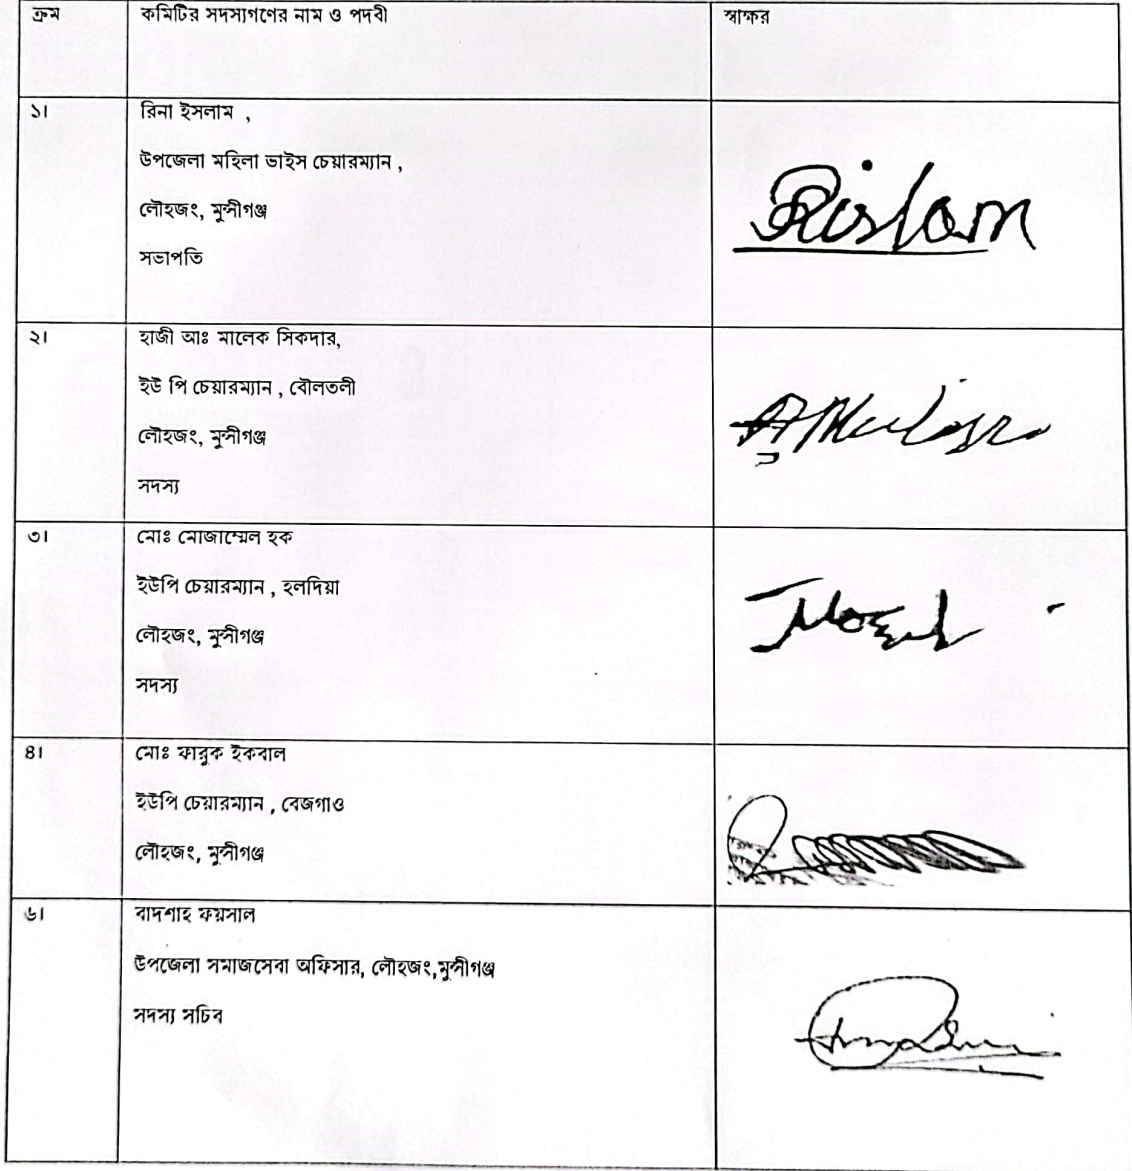 ক্রম কমিটির সদস্যগণের নাম ও পদবী স্বাক্ষর
১। রিনা ইসলাম ,
উপজেলা মহিলা ভাইস চেয়ারম্যান ,
লৌহজং, মুন্সীগঞ্জ
সভাপতি
Rislam
২। হাজী আঃ মালেক সিকদার,
ইউ পি চেয়ারম্যান , বৌলতলী
লৌহজং, মুন্সীগঞ্জ
সদস্য
৩। মোঃ মোজাম্মেল হক
ইউপি চেয়ারম্যান , হলদিয়া
লৌহজং, মুন্সীগঞ্জ
সদস্য
৪। মোঃ ফারুক ইকবাল
ইউপি চেয়ারম্যান , বেজগাও
লৌহজং, মুন্সীগঞ্জ
৬। বাদশাহ ফয়সাল
উপজেলা সমাজসেবা অফিসার, লৌহজং,মুন্সীগঞ্জ
সদস্য সচিব